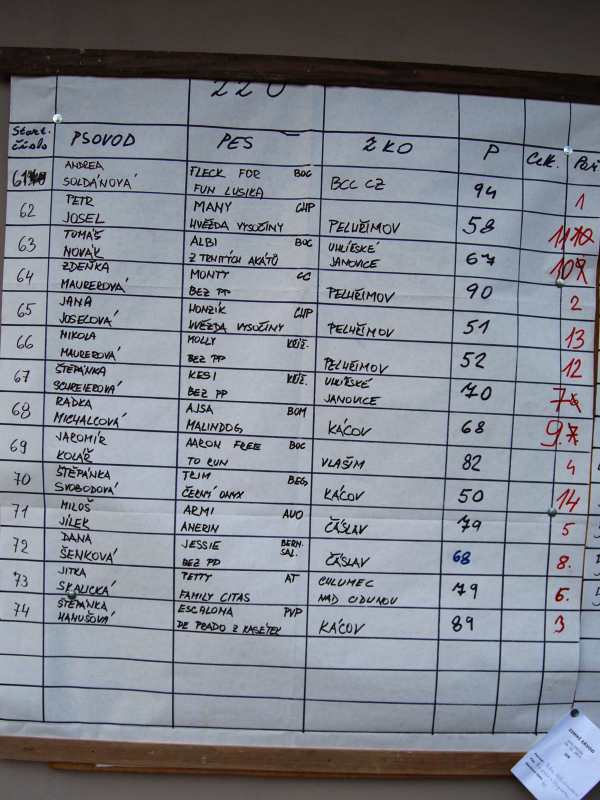 ZZO
Start. číslo PSOVOD PES ŽKO P Celk. Poř
61 ANDREA SOLDÁNOVÁ FLECK FOR BOC FUN LUSIKA BCC CZ 94 1
62 PETR JOSEL MANY CHP HVĚZDA VYSOČINY PELHŘIMOV 58 11
63 TOMÁŠ NOVÁK ALBI BOC Z TRNITÝCH AKÁTŮ UHLÍŘSKÉ JANOVICE 67 10
64 ZDEŇKA MAUREROVÁ MONTY CC BEZ PP PELHŘIMOV 90 2
65 JANA JOSELOVÁ HONZÍK CHP HVĚZDA VYSOČINY PELHŘIMOV 51 13
66 NIKOLA MAUREROVÁ MOLLY KŘÍŽ. BEZ PP PELHŘIMOV 52 12
67 ŠTĚPÁNKA SCHREIEROVÁ KESI KŘÍŽ. BEZ PP UHLÍŘSKÉ JANOVICE 70 7
68 RADKA MICHALCOVÁ AJSA BOM MALINDOG KÁCOV 68 9.
69 JAROMÍR KOLÁŘ AARON FREE BOC TO RUN VLAŠIM 82 4
70 ŠTĚPÁNKA SVOBODOVÁ TRIM BEG. ČERNÝ ONYX KÁCOV 50 14
71 MILOŠ JÍLEK ARMI AUO ANERIN ČÁSLAV 79 5
72 DANA ŠENKOVÁ JESSIE BERN. SAL. BEZ PP ČÁSLAV 68 8.
73 JITKA SKALICKÁ TETTY AT FAMILY CITAS CHLUMEC NAD CIDLINOU 79 6.
74 ŠTĚPÁNKA HANUŠOVÁ ESCALONA PVP DE PRADO Z KASETEK KÁCOV 89 3